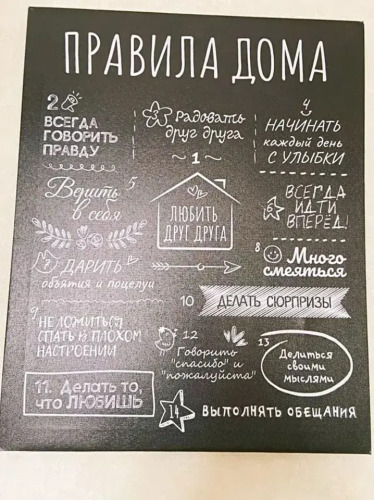 ПРАВИЛА ДОМА
2
ВСЕГДА
ГОВОРИТЬ
ПРАВДУ
3
Радовать
друг друга
4
НАЧИНАТЬ
каждый день
С УЛЫБКИ
1
ЛЮБИТЬ
ДРУГ ДРУГА
5
Верить
в себя
6
ВСЕГДА
ИДТИ
ВПЕРЁД!
7
ДАРИТЬ
объятия и поцелуи
8
Много
смеяться
10
ДЕЛАТЬ СЮРПРИЗЫ
9
НЕ ЛОЖИТЬСЯ
СПАТЬ В ПЛОХОМ
НАСТРОЕНИИ
12
Говорить
"спасибо" и
"пожалуйста"
13
Делиться
своими
мыслями
11. Делать то,
что ЛЮБИШЬ
14
ВЫПОЛНЯТЬ ОБЕЩАНИЯ